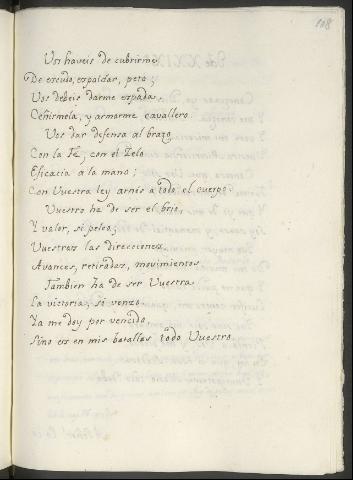 108
Vos haveis de cubrirme,
De escudo, espaldar, peto;
Vos debeis darme espada.
Ceñirmela, y armarme cavallero.
Vos dar defensa al brazo
Con la Fé, con el Zelo
Eficacia a la mano;
Con Vuestra ley arnés a todo el cuerpo.
Vuestro ha de ser el brio,
Y valor, si peleo;
Vuestras las direcciones,
Avances, retiradas, movimientos.
Tambien ha de ser Vuestra
La victoria, si venzo.
Ya me doy por vencido,
Sino es en mis batallas todo Vuestro.